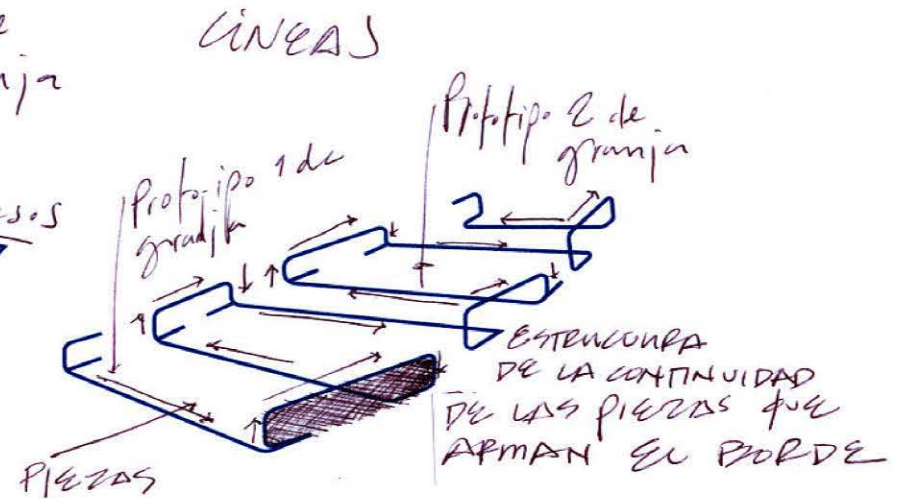 LÍNEAS
Prototipo 2 de
granja
Prototipo 1 de
ESTRUCTURA
DE LA CONTINUIDAD
DE LAS PIEZAS QUE
ARMAN EL BORDE
PIEZAS